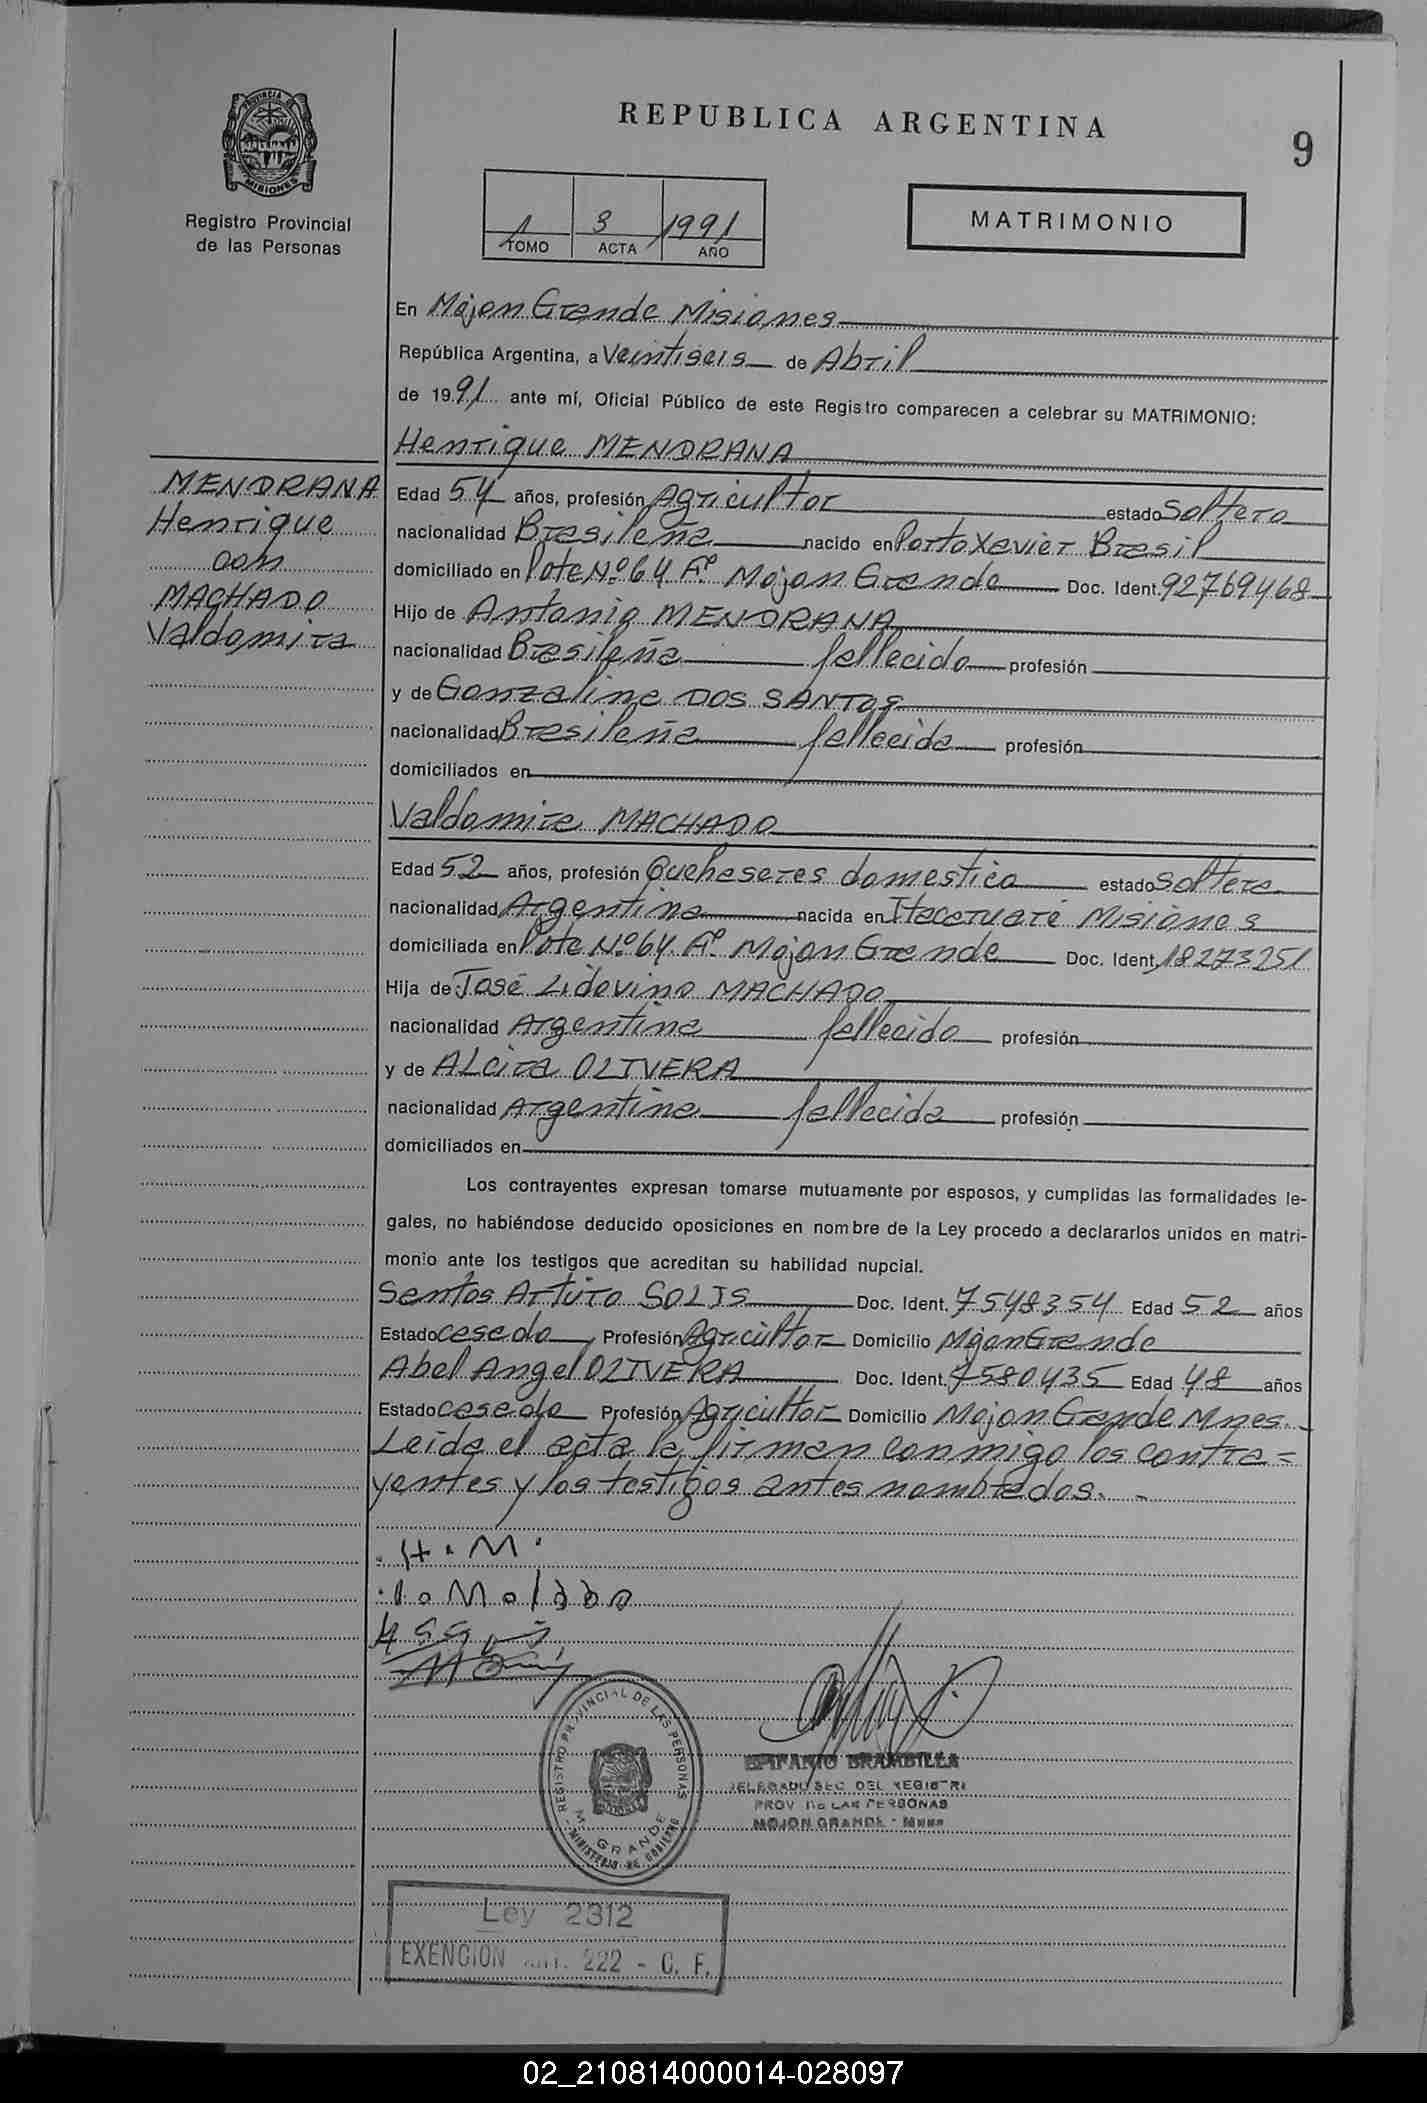 PROVINCIA DE
MISIONES
Registro Provincial
de las Personas
REPUBLICA ARGENTINA
9
1 3 1991
TOMO ACTA AÑO
MATRIMONIO
En Mojon Grande Misiones
República Argentina, a Veintiseis de Abril
de 1991 ante mí, Oficial Público de este Registro comparecen a celebrar su MATRIMONIO:
Henrique MENDRANA
MENDRANA
Henrique
con
MACHADO
Valdomira
Edad 54 años, profesión Agricultor estado soltero
nacionalidad Brasileña nacido en Porto Xavier Brasil
domiciliado en Lote Nº 64 Fº Mojon Grande Doc. Ident. 92769468
Hijo de Antonio MENDRANA
nacionalidad Brasileña fallecido profesión
y de Gonzalina DOS SANTOS
nacionalidad Brasileña fallecida profesión
domiciliados en
Valdomira MACHADO
Edad 52 años, profesión Quehaseres domestico estado soltera
nacionalidad Argentina nacida en Itacaruaré Misiones
domiciliada en Lote Nº 64 Fº Mojon Grande Doc. Ident. 18273251
Hija de José Lidovino MACHADO
nacionalidad Argentina fallecido profesión
y de ALcira OLIVERA
nacionalidad Argentina fallecida profesión
domiciliados en
Los contrayentes expresan tomarse mutuamente por esposos, y cumplidas las formalidades le-
gales, no habiéndose deducido oposiciones en nombre de la Ley procedo a declararlos unidos en matri-
monio ante los testigos que acreditan su habilidad nupcial.
Santos Arturo SOLIS Doc. Ident. 7548354 Edad 52 años
Estado casado Profesión Agricultor Domicilio Mojon Grande
Abel Angel OLIVERA Doc. Ident. 7580435 Edad 48 años
Estado casado Profesión Agricultor Domicilio Mojon Grande Mnes.
Leida el acta la firman conmigo los contra=
yentes y los testigos antes nombrados. -
H. M.
REGISTRO PROVINCIAL DE LAS PERSONAS
M. GRANDE
MINISTERIO DE GOBIERNO
EPIFANIO BRAMBILLA
DELEGADO SEC. DEL REGISTR
PROV DE LAS PERSONAS
MOJON GRANDE - Mnes
Ley 2312
EXENCION 222 - C. F.
02_210814000014-028097